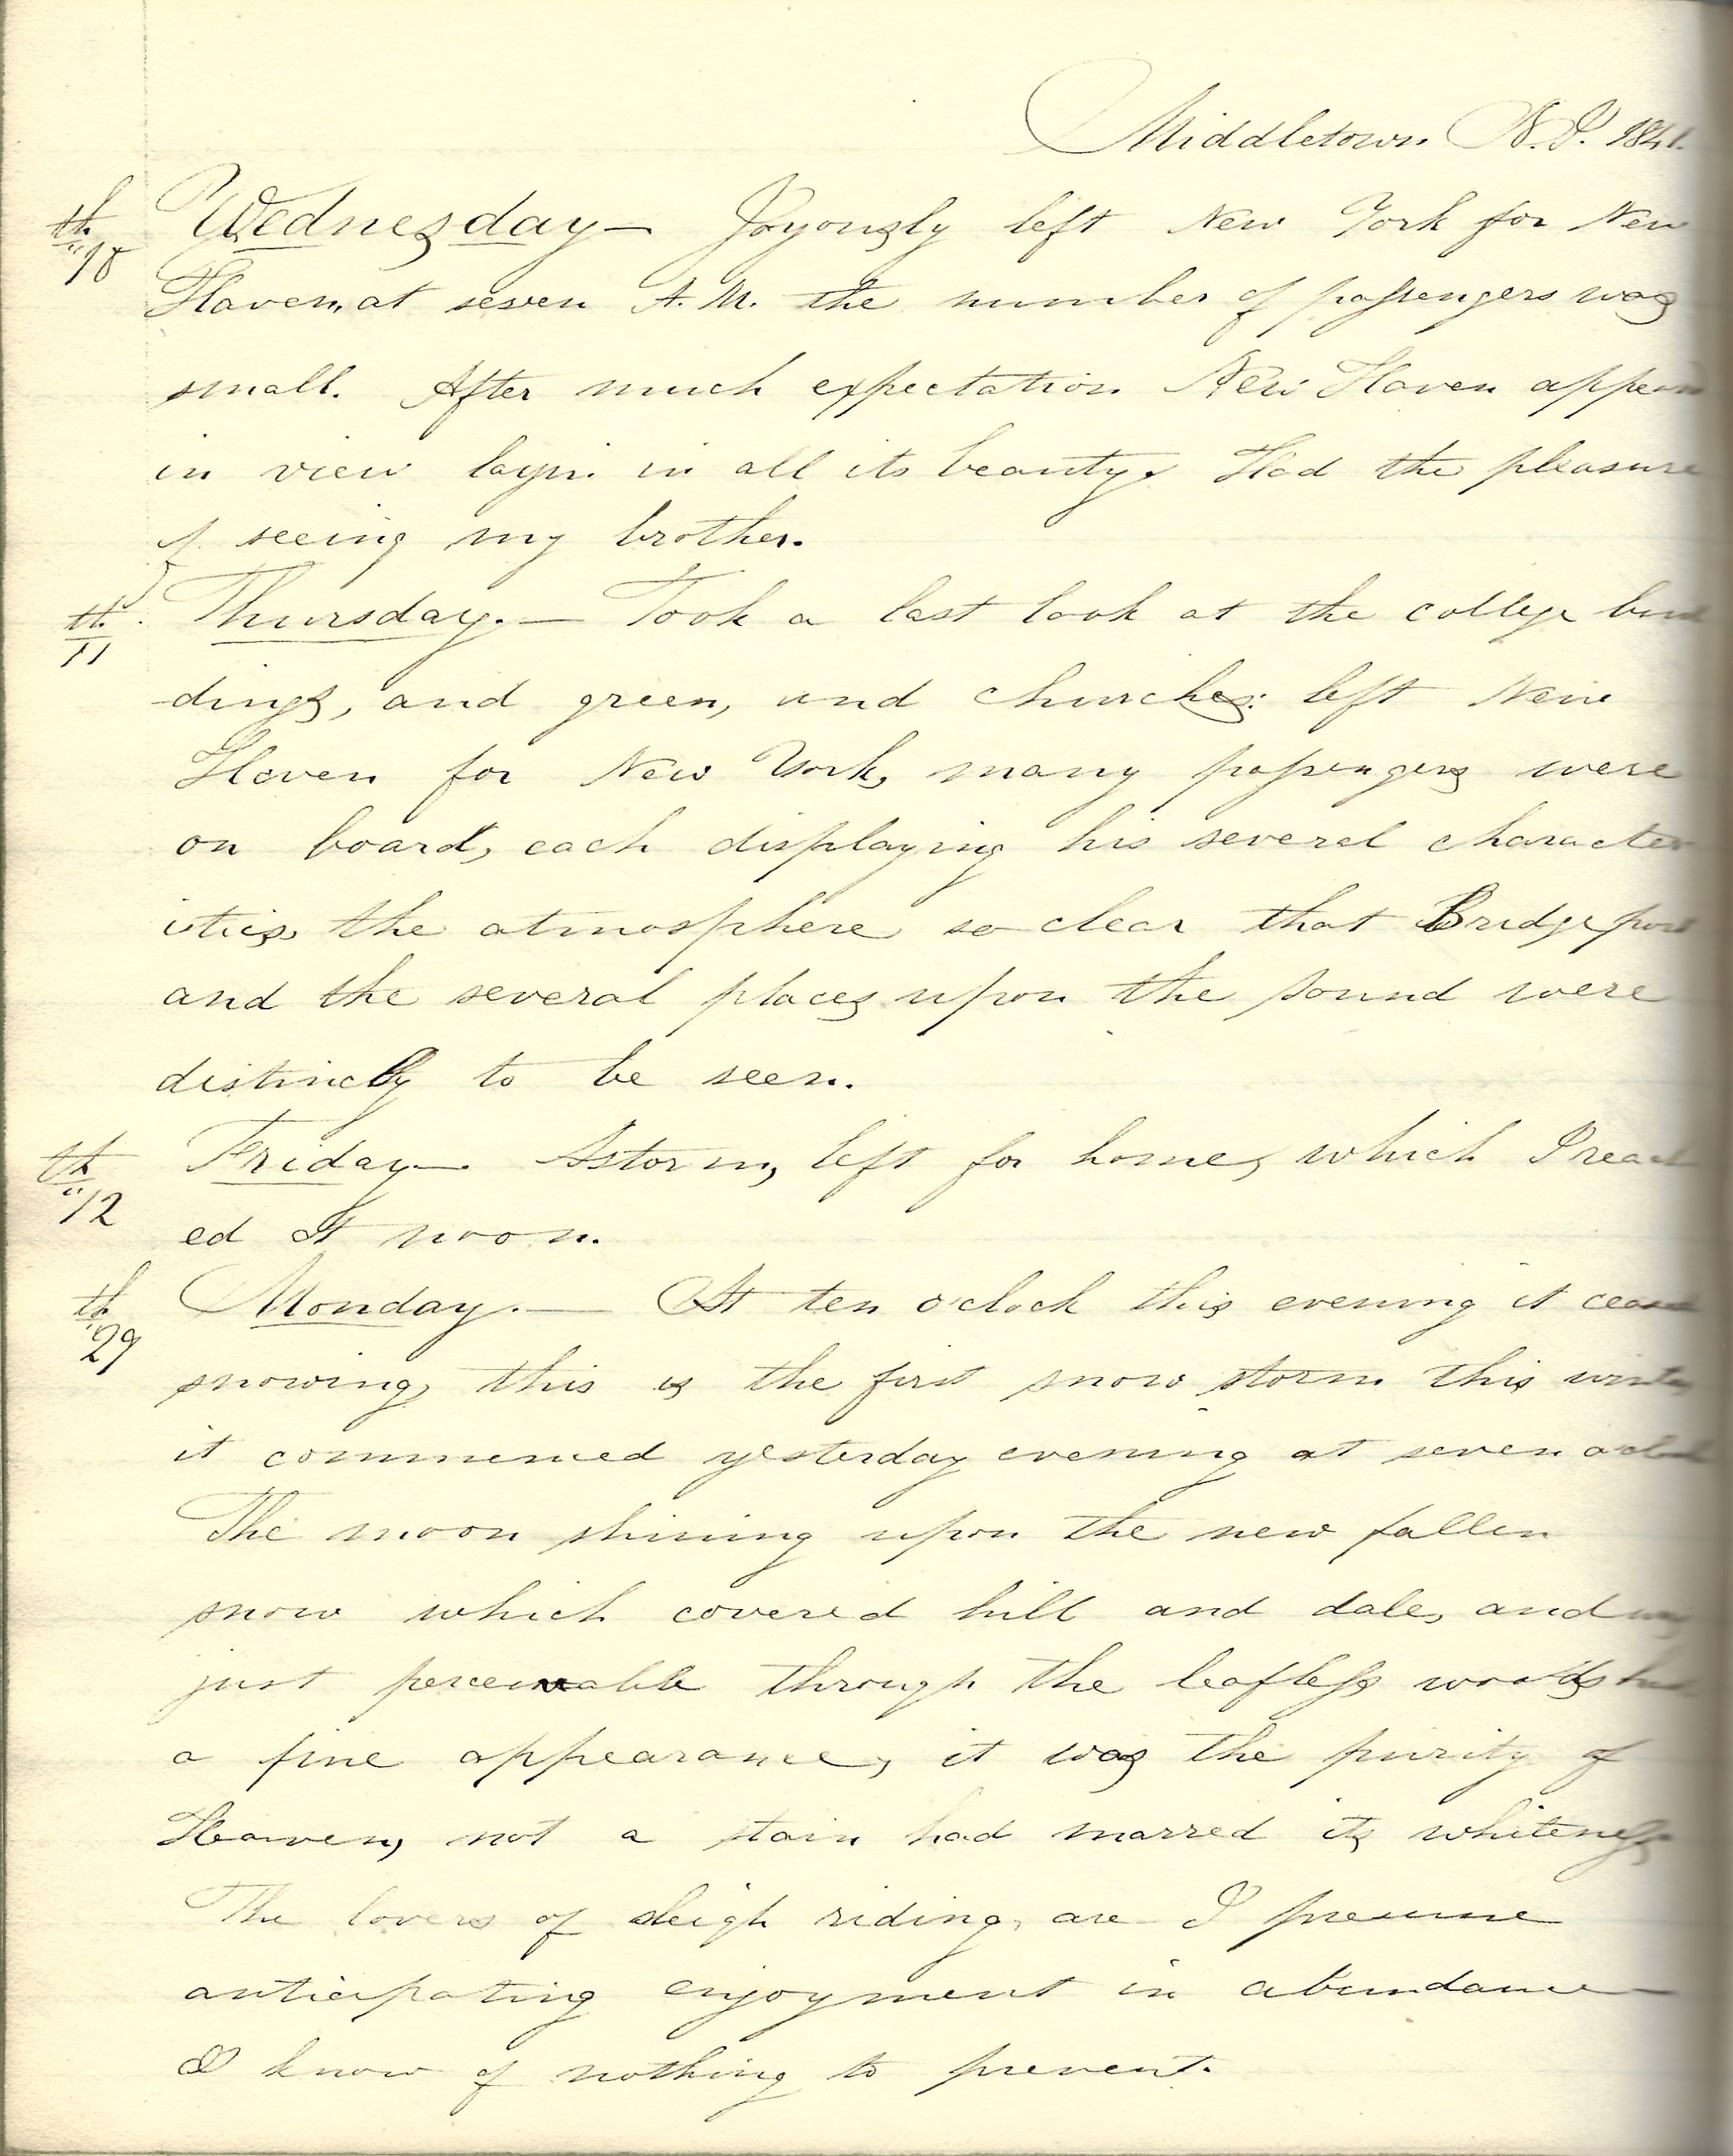 Middletown N.J. 1841.
th 10 Wednesday— Joyously left New York for New
Haven, at seven A.M. the number of passengers was
small. After much expectation New Haven appears
in view layin in all its beauty. Had the pleasure
of seeing my brother.
th 11 Thursday.— Took a last look at the college buil
dings, and green, and churches: left New
Haven for New York, many passengers were
on board, each displaying his several character
istics, the atmosphere so clear that Bridgeport
and the several places upon the sound were
distinctly to be seen.
th 12 Friday— A storm, left for home, which I reach
ed at noon.
th 29 Monday.— At ten o'clock this evening it ceased
snowing, this is the first snow storm this winter
it commenced yesterday evening at seven o'clock
The moon shining upon the new fallen
snow which covered hill and dale, and
just perceivable through the leafless woods had
a fine appearance, it was the purity of
Heaven, not a stain had marred its whiteness
The lovers of sleigh riding, are I presume
anticipating enjoyment in abundance
I know of nothing to prevent.